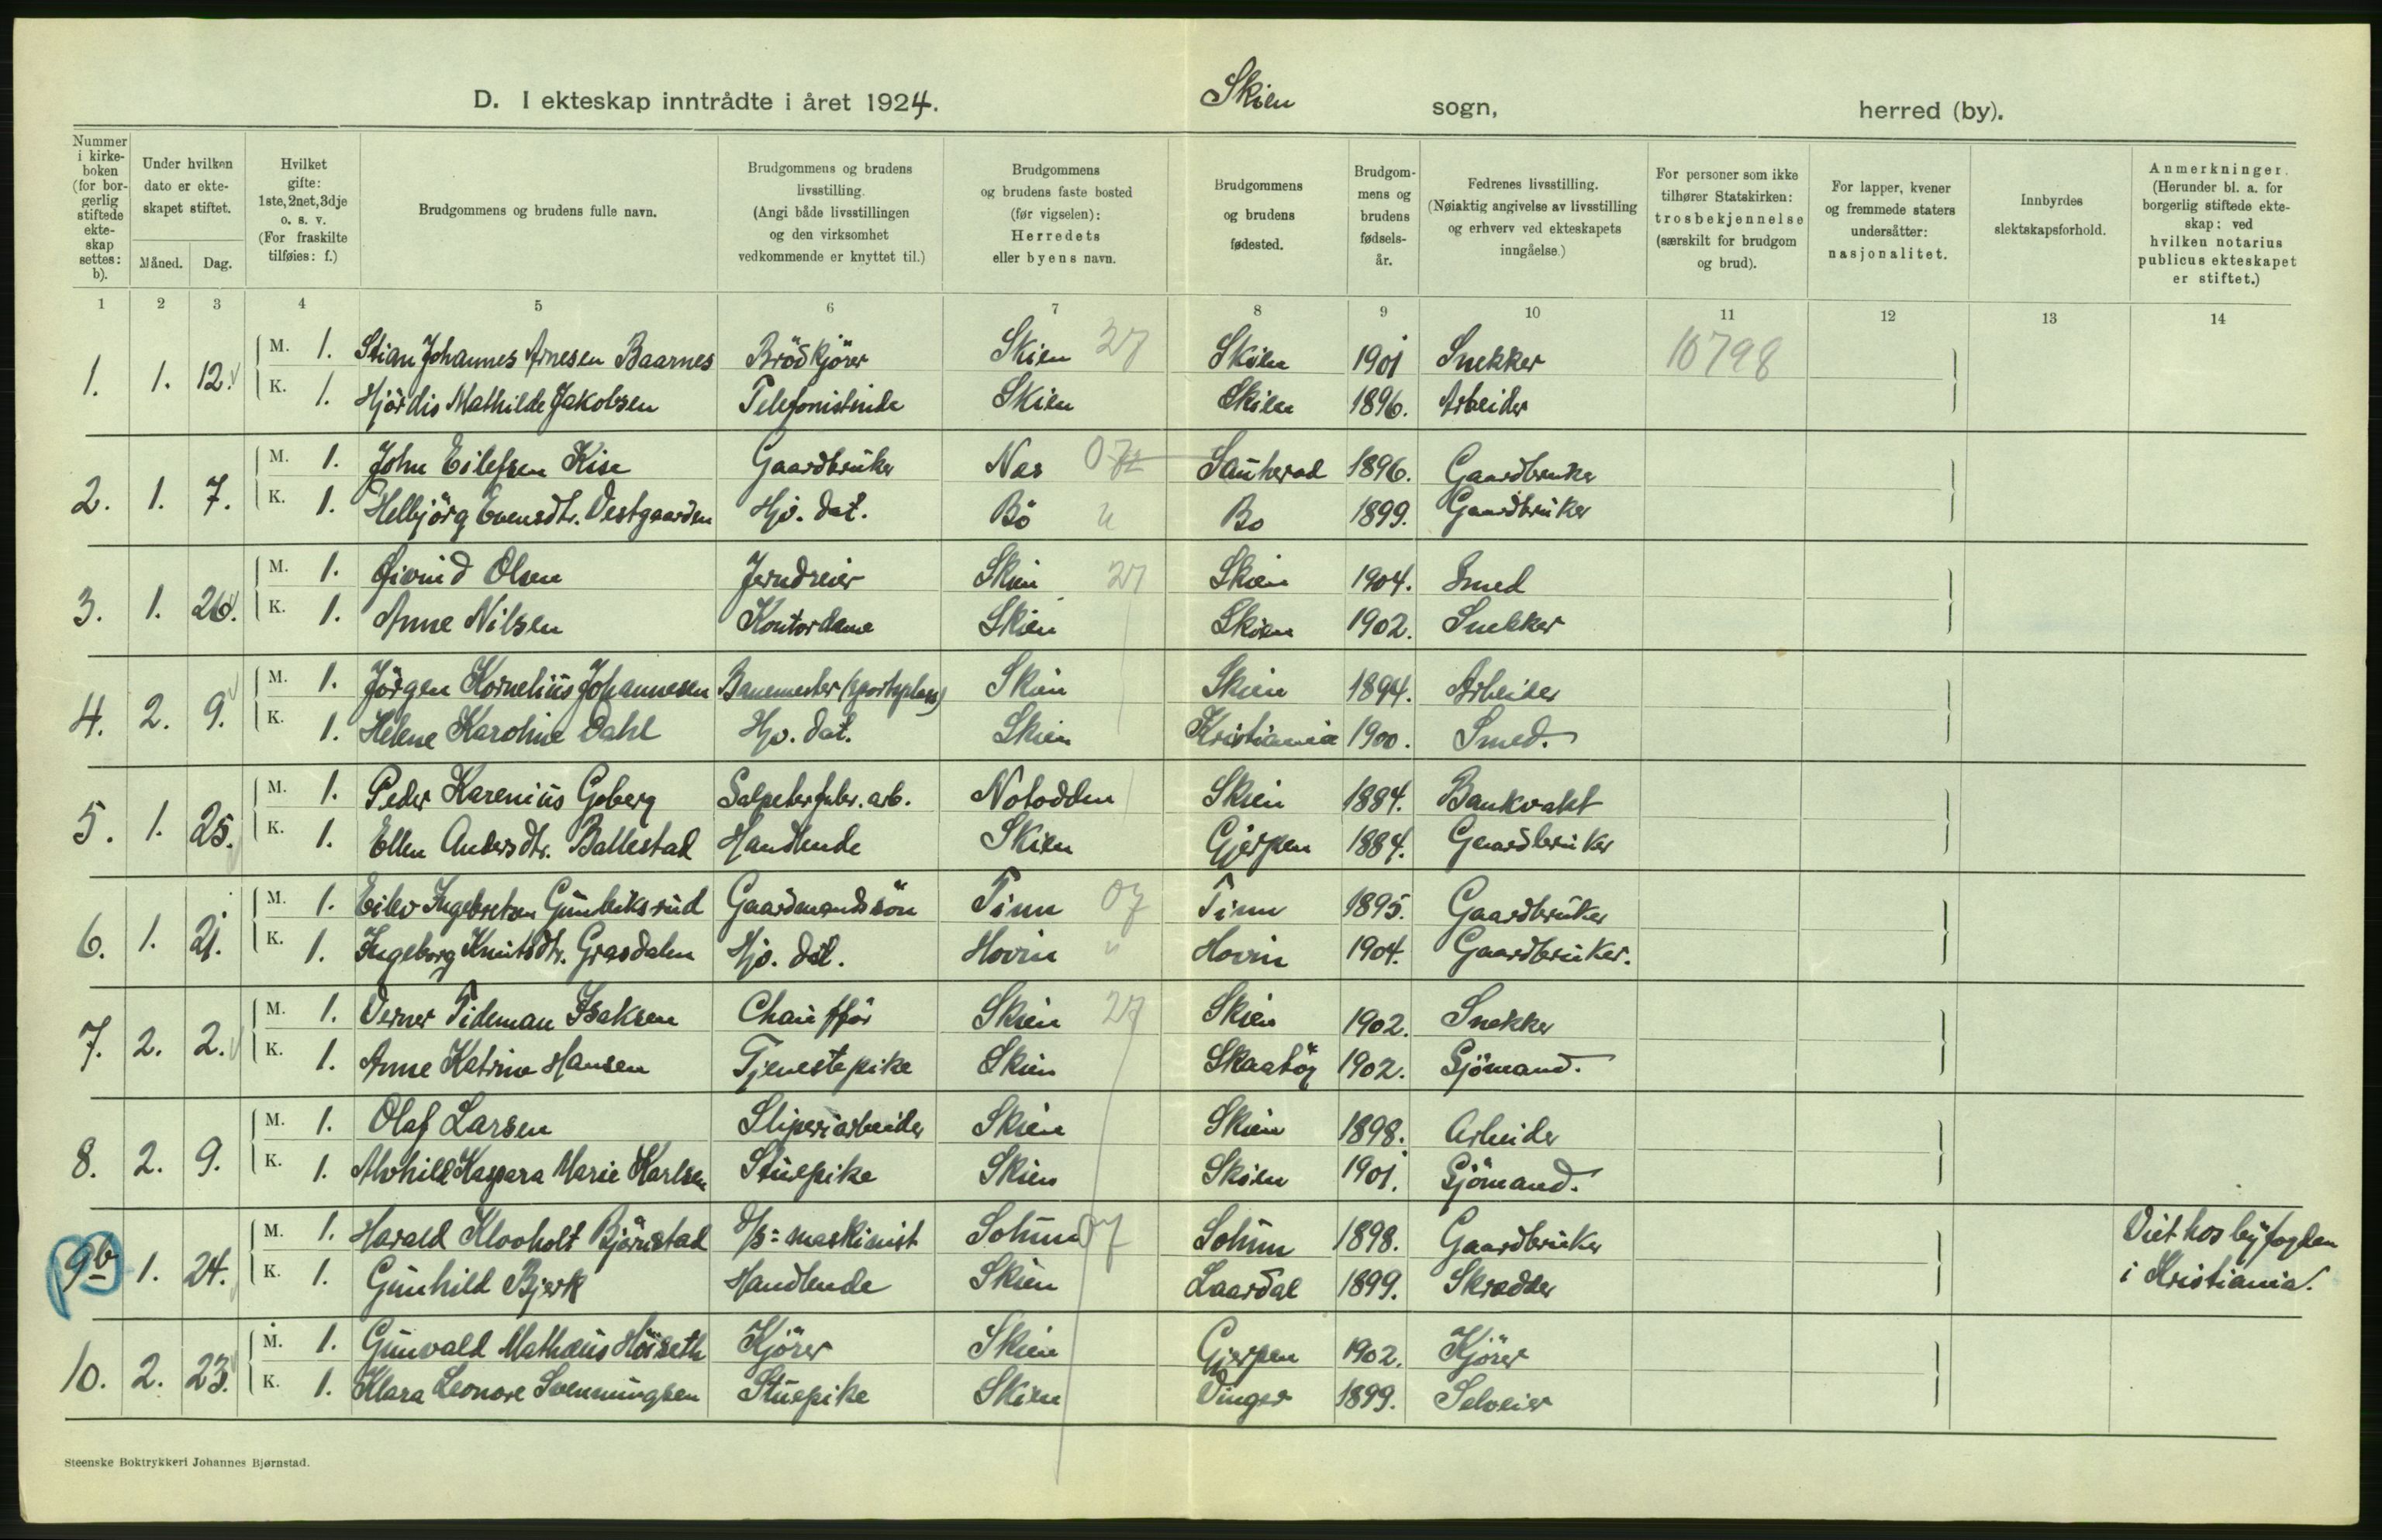 D. I ekteskap inntrådte i året 1924. Skien sogn, herred (by).
Nummer i kirke-boken (for bor-gerlig stiftede ekte-skap settes: b).
Under hvilken dato er ekte-skapet stiftet.
Måned. Dag.
Hvilket gifte: 1ste, 2net, 3dje o. s. v. (For fraskilte tilføies: f.)
Brudgommens og brudens fulle navn.
Brudgommens og brudens livsstilling. (Angi både livsstillingen og den virksomhet vedkommende er knyttet til.)
Brudgommens og brudens faste bosted (før vigselen): Herredets eller byens navn.
Brudgommens og brudens fødested.
Brudgom-mens og brudens fødsels-år.
Fedrenes livsstilling. (Nøiaktig angivelse av livsstilling og erhverv ved ekteskapets inngåelse.)
For personer som ikke tilhører Statskirken: trosbekjennelse (særskilt for brudgom og brud).
For lapper, kvener og fremmede staters undersåtter: nasjonalitet.
Innbyrdes slektskapsforhold.
Anmerkninger. (Herunder bl. a. for borgerlig stiftede ekte-skap: ved hvilken notarius publicus ekteskapet er stiftet.)
1 2 3 4 5 6 7 8 9 10 11 12 13 14
1. 1. 12. M. 1. Stian Johannes Arnesen Baarnes Brödkjörer Skien 27 Skien 1901 Snekker 10798
K. 1. Hjördis Mathilde Jakobsen Telefonistinde Skien Skien 1896. Arbeider
2. 1. 7. M. 1. John Eilefsen Kise Gaardbruker Nes 07 Sauherad 1896. Gaardbruker
K. 1. Helbjörg Evensdtr. Vestgaarden Hjv. dat. Bö " Bö 1899. Gaardbruker
3. 1. 26. M. 1. Øivind Olsen Jerndreier Skien 27 Skien 1904. Smed
K. 1. Anne Nilsen Kontordame Skien Skien 1902. Snekker
4. 2. 9. M. 1. Jörgen Kornelius Johannesen Banemester (sportsplass) Skien Skien 1894. Arbeider
K. 1. Helene Karoline Dahl Hjv. dat. Skien Kristiania 1900. Smed.
5. 1. 25. M. 1. Peder Karenius Goberg Salpeterfabr. arb. Notodden Skien 1884. Bankvakt
K. 1. Ellen Andersdtr. Ballestad Handlende Skien Gjerpen 1884. Gaardbruker
6. 1. 21. M. 1. Eilev Ingebretsen Gunleiksrud Gaardmandssön Tinn 07 Tinn 1895. Gaardbruker
K. 1. Ingeborg Knutsdtr. Grasdalen Hjv. dat. Hovin " Hovin 1904. Gaardbruker.
7. 2. 2. M. 1. Verner Tideman Isaksen Chaufför Skien 27 Skien 1902. Snekker
K. 1. Anne Katrine Hansen Tjenestepike Skien Skaatöy 1902. Sjömand.
8. 2. 9. M. 1. Olaf Larsen Sliperiarbeider Skien Skien 1898. Arbeider
K. 1. Alvhild Kaspara Marie Karlsen Stuepike Skien Skien 1901. Sjömand.
9b 1. 24. M. 1. Harald Klovholt Björnstad D/s: maskinist Solum 07 Solum 1898. Gaardbruker Viet hos byfogden
K. 1. Gunhild Bjerk Handlende Skien Laardal 1899. Skrædder i Kristiania.
10. 2. 23. M. 1. Gunvald Mathæus Höiseth Kjörer Skien Gjerpen 1902. Kjörer
K. 1. Klara Leonore Svenningsen Stuepike Skien Vinger 1899. Selveier
Steenske Boktrykkeri Johannes Bjørnstad.